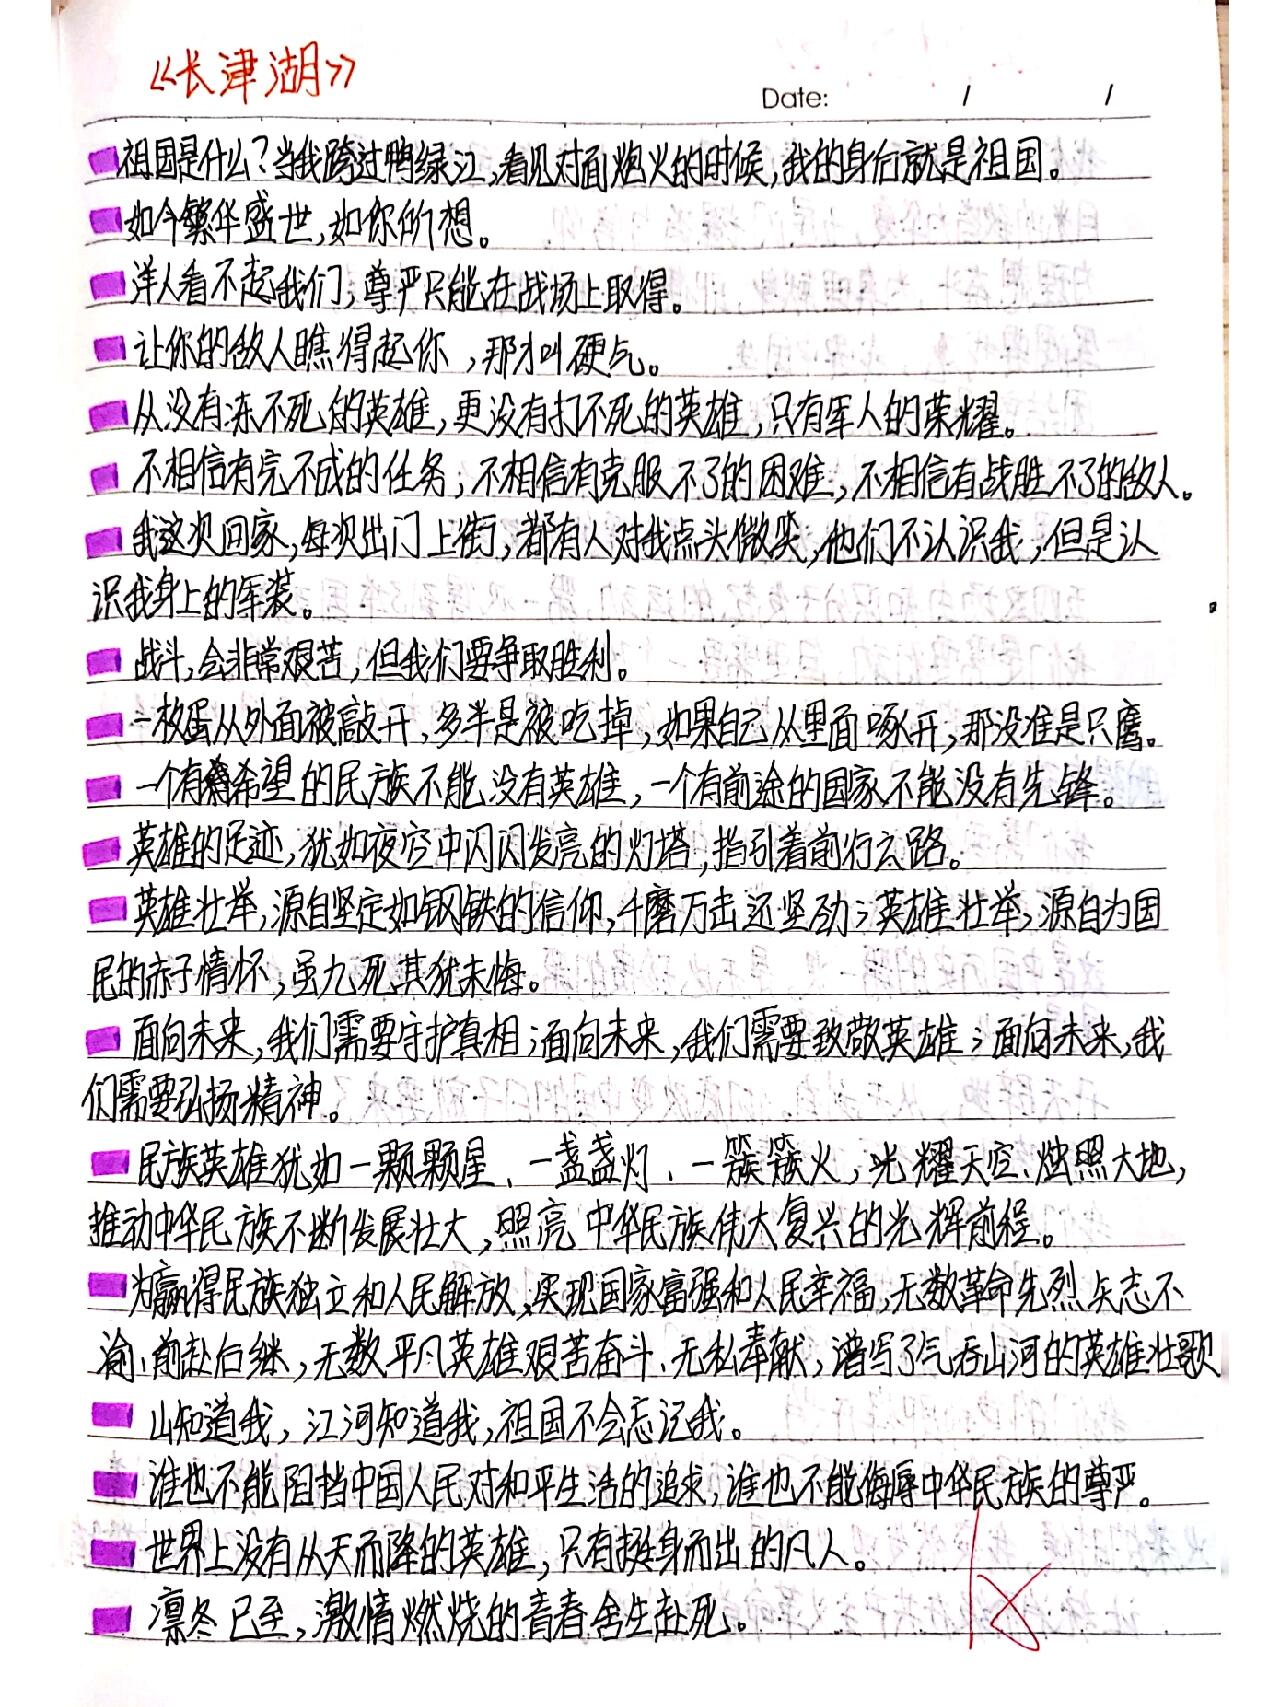 《长津湖》
Date: / /
祖国是什么?当我跨过鸭绿江,看见对面炮火的时候,我的身后就是祖国。
如今繁华盛世,如你所想。
洋人看不起我们,尊严只能在战场上取得。
让你的敌人瞧得起你,那才叫硬气。
从没有冻不死的英雄,更没有打不死的英雄,只有军人的荣耀。
不相信有完不成的任务,不相信有克服不了的困难,不相信有战胜不了的敌人。
我这次回家,每次出门上街,都有人对我点头微笑,他们不认识我,但是认
识我身上的军装。
战斗,会非常艰苦,但我们要争取胜利。
一枚蛋从外面被敲开,多半是被吃掉,如果自己从里面啄开,那没准是只鹰。
一个有希望的民族不能没有英雄,一个有前途的国家不能没有先锋。
英雄的足迹,犹如夜空中闪闪发亮的灯塔,指引着前行之路。
英雄壮举,源自坚定如钢铁的信仰,千磨万击还坚劲;英雄壮举,源自为国
民的赤子情怀,虽九死其犹未悔。
面向未来,我们需要守护真相;面向未来,我们需要致敬英雄;面向未来,我
们需要弘扬精神。
民族英雄犹如一颗颗星、一盏盏灯、一簇簇火,光耀天空、烛照大地,
推动中华民族不断发展壮大,照亮中华民族伟大复兴的光辉前程。
为赢得民族独立和人民解放,实现国家富强和人民幸福,无数革命先烈矢志不
渝、前赴后继,无数平凡英雄艰苦奋斗、无私奉献,谱写了气吞山河的英雄壮歌
山知道我,江河知道我,祖国不会忘记我。
谁也不能阻挡中国人民对和平生活的追求,谁也不能侮辱中华民族的尊严。
世界上没有从天而降的英雄,只有挺身而出的凡人。
凛冬已至,激情燃烧的青春舍生赴死。